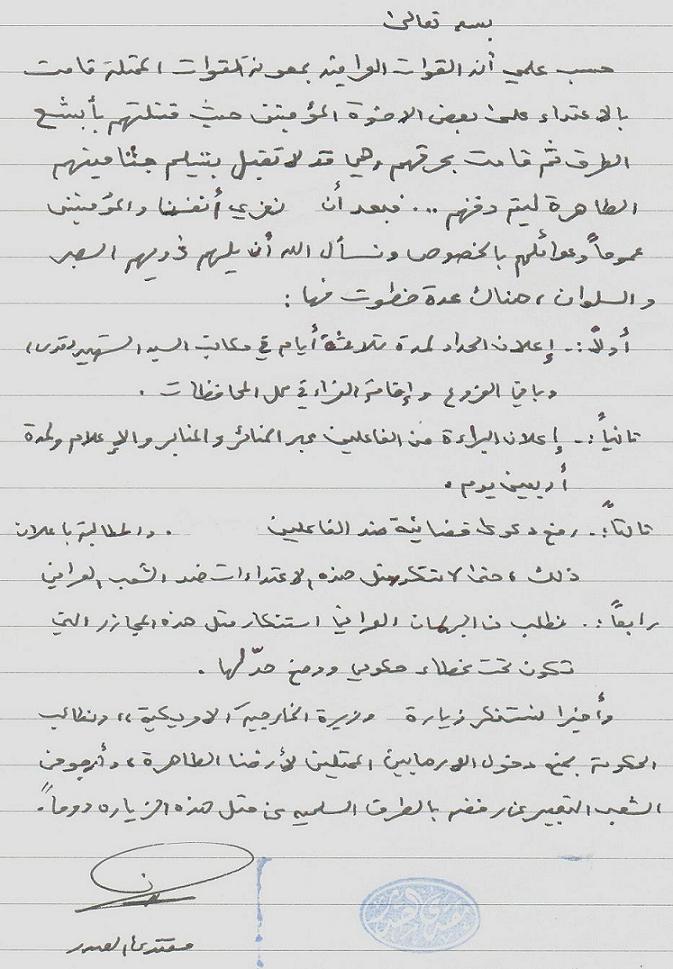 بسمه تعالى
حسب علمي أن القوات العراقية بمعونة القوات المحتلة قامت
بالاعتداء على بعض الاخوة المؤمنين حيث قتلتهم بأبشع
الطرق ثم قامت بحرقهم وهي قد لا تقبل بتسليم جثامينهم
الطاهرة ليتم دفنهم ... فبعد أن نعزي أنفسنا والمؤمنين
عموماً وعوائلهم بالخصوص ونسأل الله أن يلهم ذويهم الصبر
و السلوان ، هناك عدة خطوت منها :
أولاً :ـ إعلان الحداد لمدة ثلاثة أيام في مكاتب السيد الشهيد (قدس)
وباقي الفروع وإقامة العزاء في كل المحافظات .
ثانياً :ـ إعلان البراءة من الفاعلين عبر المنائر والمنابر والإعلام ولمدة
أربعين يوم .
ثالثاً :ـ رفع دعوى قضائية ضد الفاعلين . والمطالبة باعلان
ذلك ، حتى لا تتكرر مثل هذه الاعتداءات ضد الشعب العراقي
رابعاً :ـ نطلب من البرلمان العراقي استنكار مثل هذه المجازر التي
تكون تحت غطاء حكومي ووضع حدّ لها .
وأخيرا نستنكر زيارة وزيرة الخارجية الامريكية ،، ونطالب
الحكومة بمنع دخول الارهابيين المحتلين لأرضنا الطاهرة ، وأرجو من
الشعب التعبير عن رفضه بالطرق السلمية عن مثل هذه الزياره دوماً .
مقتدى الصدر